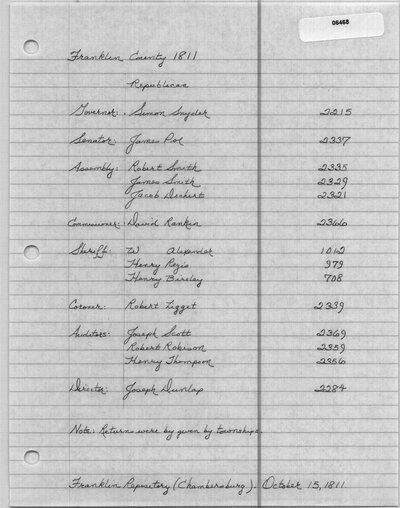 06468
Franklin County 1811
Republican
Governor: Simon Snyder 2215
Senator: James Poe 2337
Assembly: Robert Smith 2335
James Smith 2329
Jacob Dechert 2321
Commissioner: David Rankin 2366
Sheriff: W Alexander 1012
Henry Regis 979
Henry Bireley 708
Coroner: Robert Ligget 2339
Auditors: Joseph Scott 2369
Robert Robison 2359
Henry Thompson 2356
Director: Joseph Dunlap 2284
Note: Returns were by given by townships.
Franklin Repository (Chambersburg). October 15, 1811